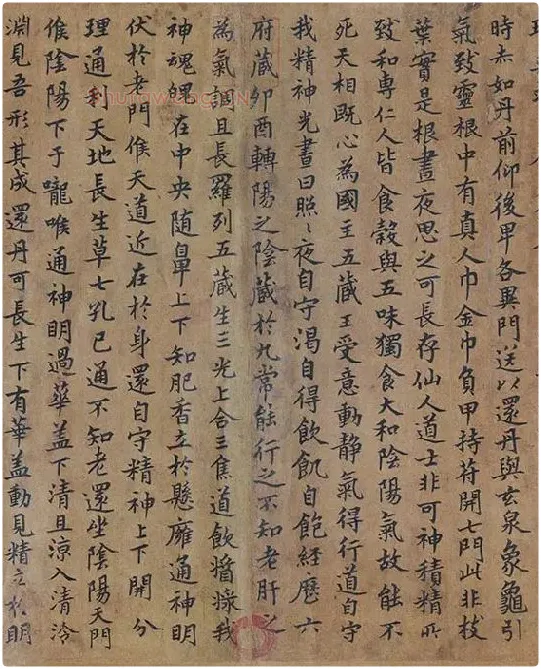 時赤如丹前仰後卑各異門送以還丹與玄泉象龜引
氣致靈根中有真人巾金巾負甲持符開七門此非枝
葉實是根晝夜思之可長存仙人道士非可神積精所
致和專仁人皆食穀與五味獨食大和陰陽氣故能不
死天相既心為國主五藏王受意動靜氣得行道自守
我精神光晝日照〻夜自守渴自得飲飢自飽經歷六
府藏卯酉轉陽之陰藏於九常能行之不知老肝之
為氣調且長羅列五藏生三光上合三焦道飲醬漿我
神魂魄在中央隨鼻上下知肥香立於懸膺通神明
伏於老門候天道近在於身還自守精神上下開分
理通利天地長生草七孔已通不知老還坐陰陽天門
候陰陽下于嚨喉通神明過華蓋下清且涼入清泠
淵見吾形其成還丹可長生下有華蓋動見精立於明